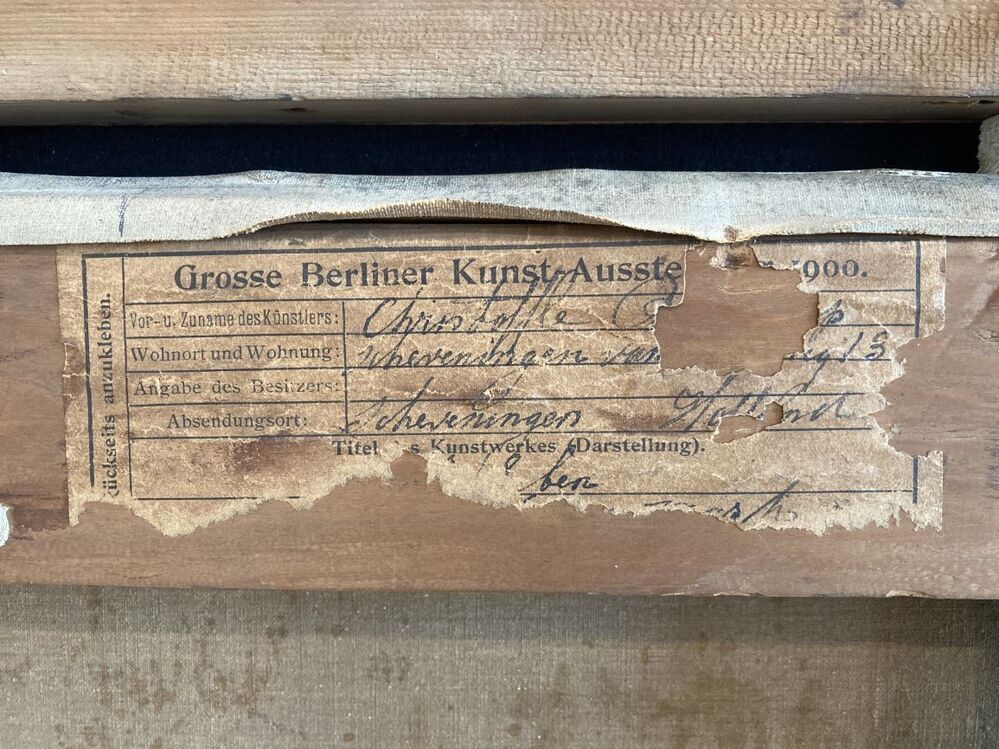 Grosse Berliner Kunst-Ausste 1900.
Vor- u. Zuname des Künstlers: Christoffe
Wohnort und Wohnung: Scheveningen van
Angabe des Besitzers:
Absendungsort: Scheveningen Holland
Titel s Kunstwerkes (Darstellung).
ben
ückseits anzukleben.